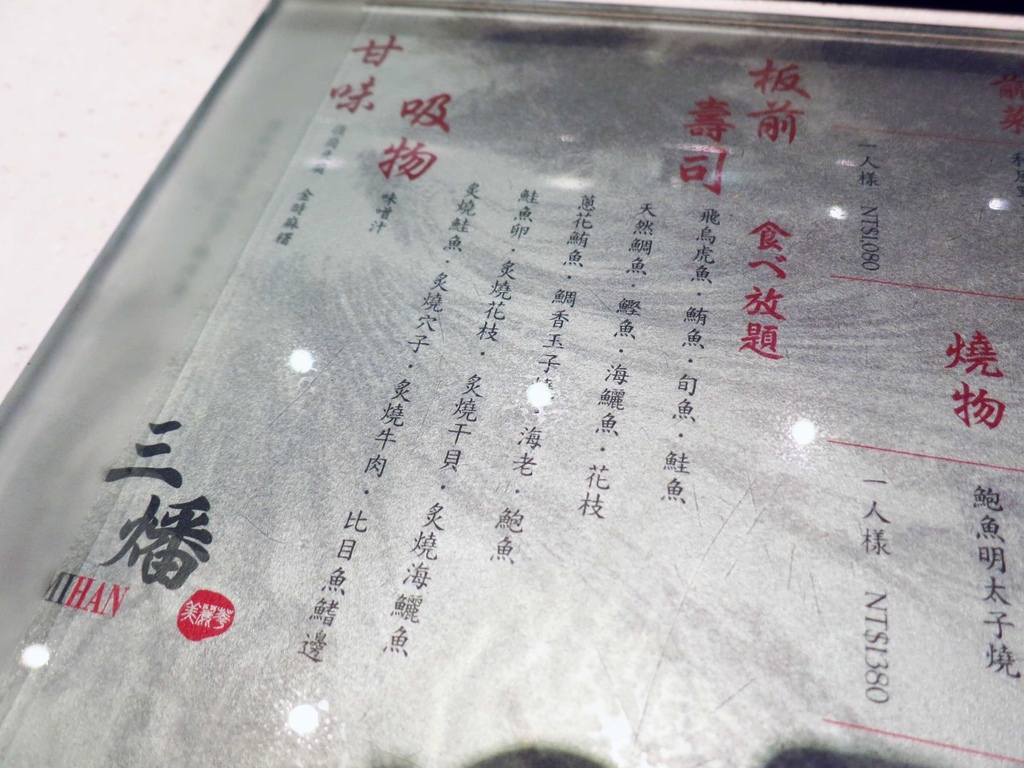 前菜
一人樣 NT$1,080
燒物
鮑魚明太子燒
一人樣 NT$1380
板前
壽司
食べ放題
飛烏虎魚・鮪魚・旬魚・鮭魚
天然鯛魚・鰹魚・海鱺魚・花枝
蔥花鮪魚・鯛香玉子燒・海老・鮑魚
鮭魚卵・炙燒花枝・炙燒干貝・炙燒海鱺魚
炙燒鮭魚・炙燒穴子・炙燒牛肉・比目魚鰭邊
吸物
味噌汁
甘味
三燔
HAN